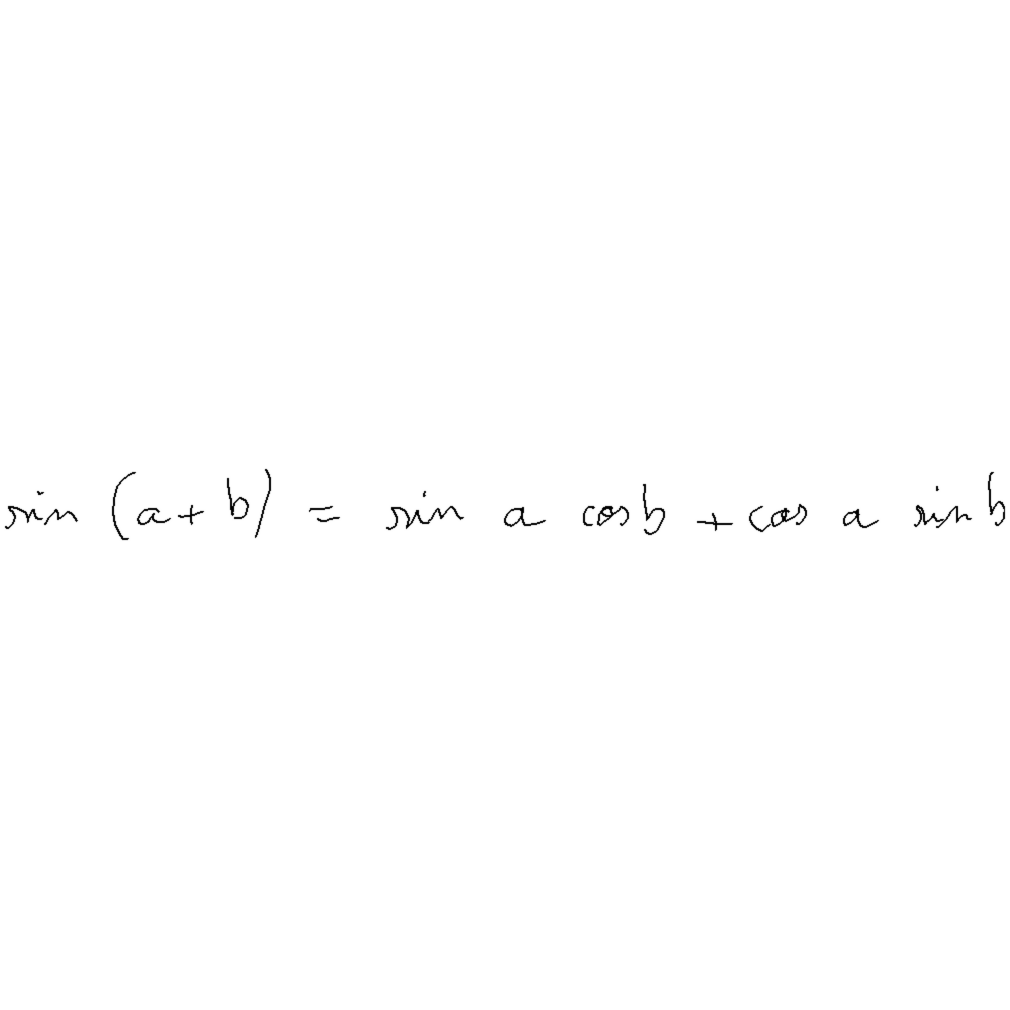 sin (a+b) = sin a cos b + cos a sin b